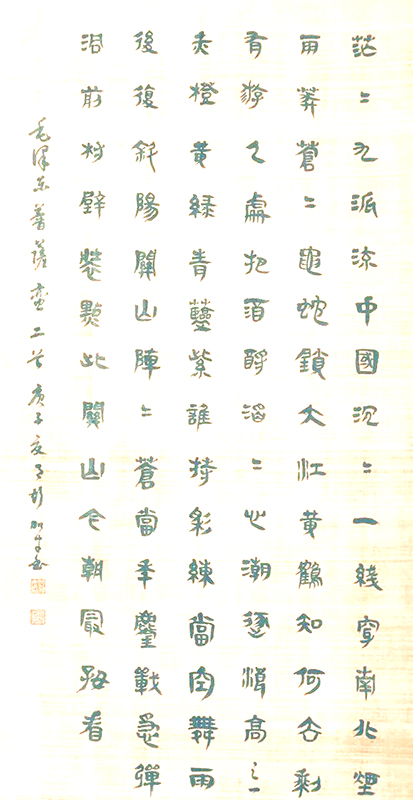 茫〻九派流中國沉〻一綫穿南北煙
雨莽蒼〻龜蛇鎖大江黃鶴知何去剩
有游人處把酒酹滔〻心潮逐浪高之一
赤橙黃綠青藍紫誰持彩練當空舞雨
後復斜陽關山陣〻蒼當年鏖戰急彈
洞前村壁裝點此關山今朝最好看
毛澤東菩薩蠻二首庚子夏月